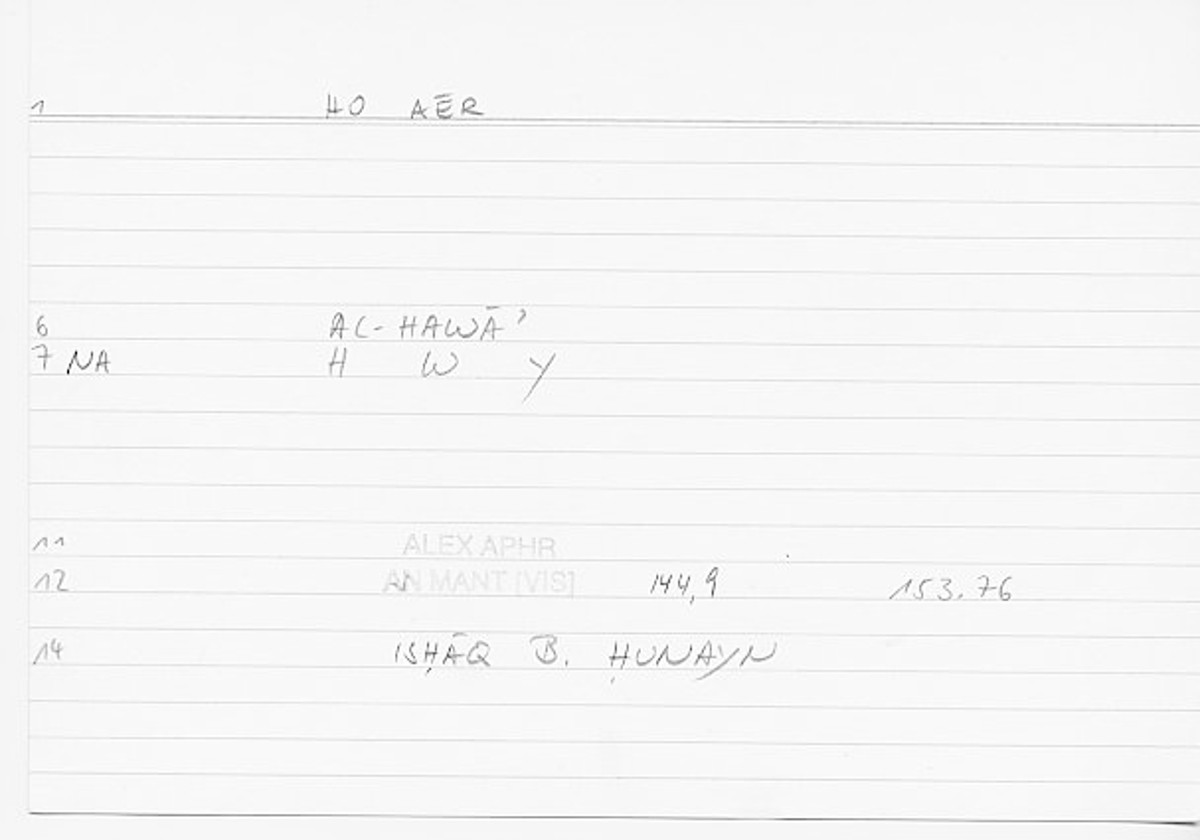 1 HO AĒR
6 AL-HAWĀʾ
7 NA H W Y
11 ALEX APHR
12 AN MANT [VIS] 144,9 153.76
14 ISḤĀQ B. ḤUNAYN